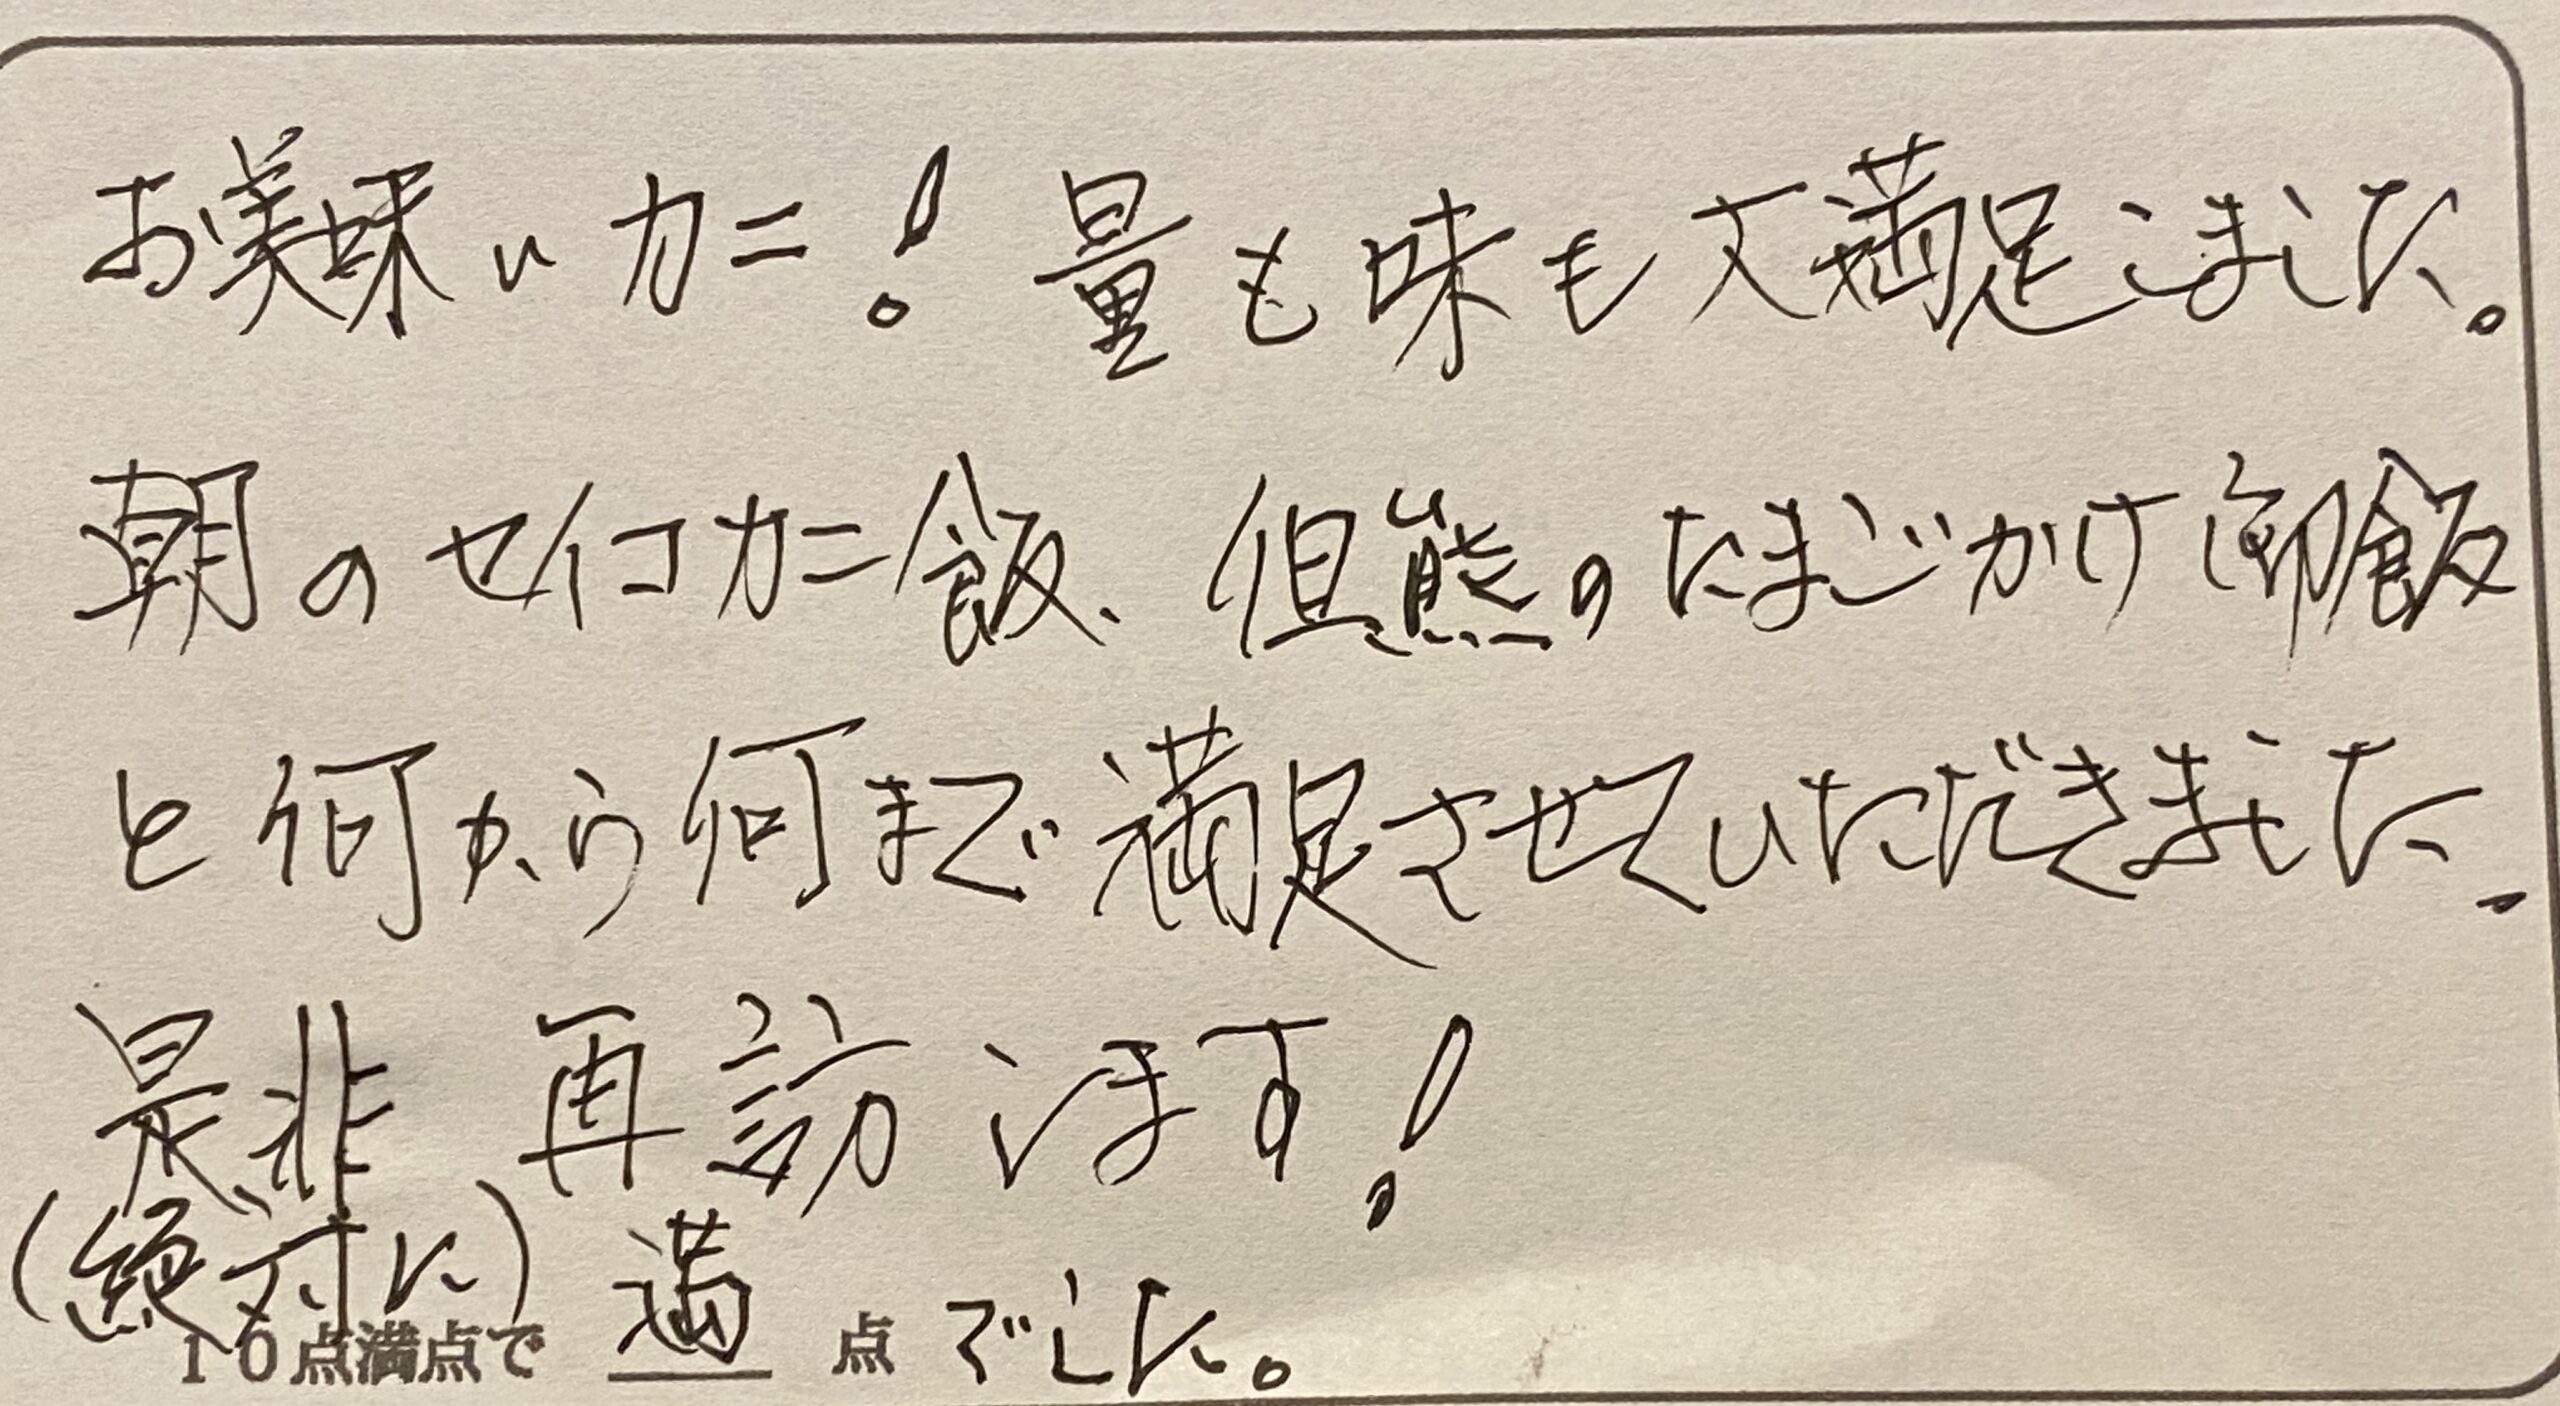 お美味いカニ！量も味も大満足しました。
朝のセイコカニ飯、但熊のたまごかけ御飯
と何から何まで満足させていただきました。
是非 再訪します！
（絶対に）
10点満点で 満 点 でした。